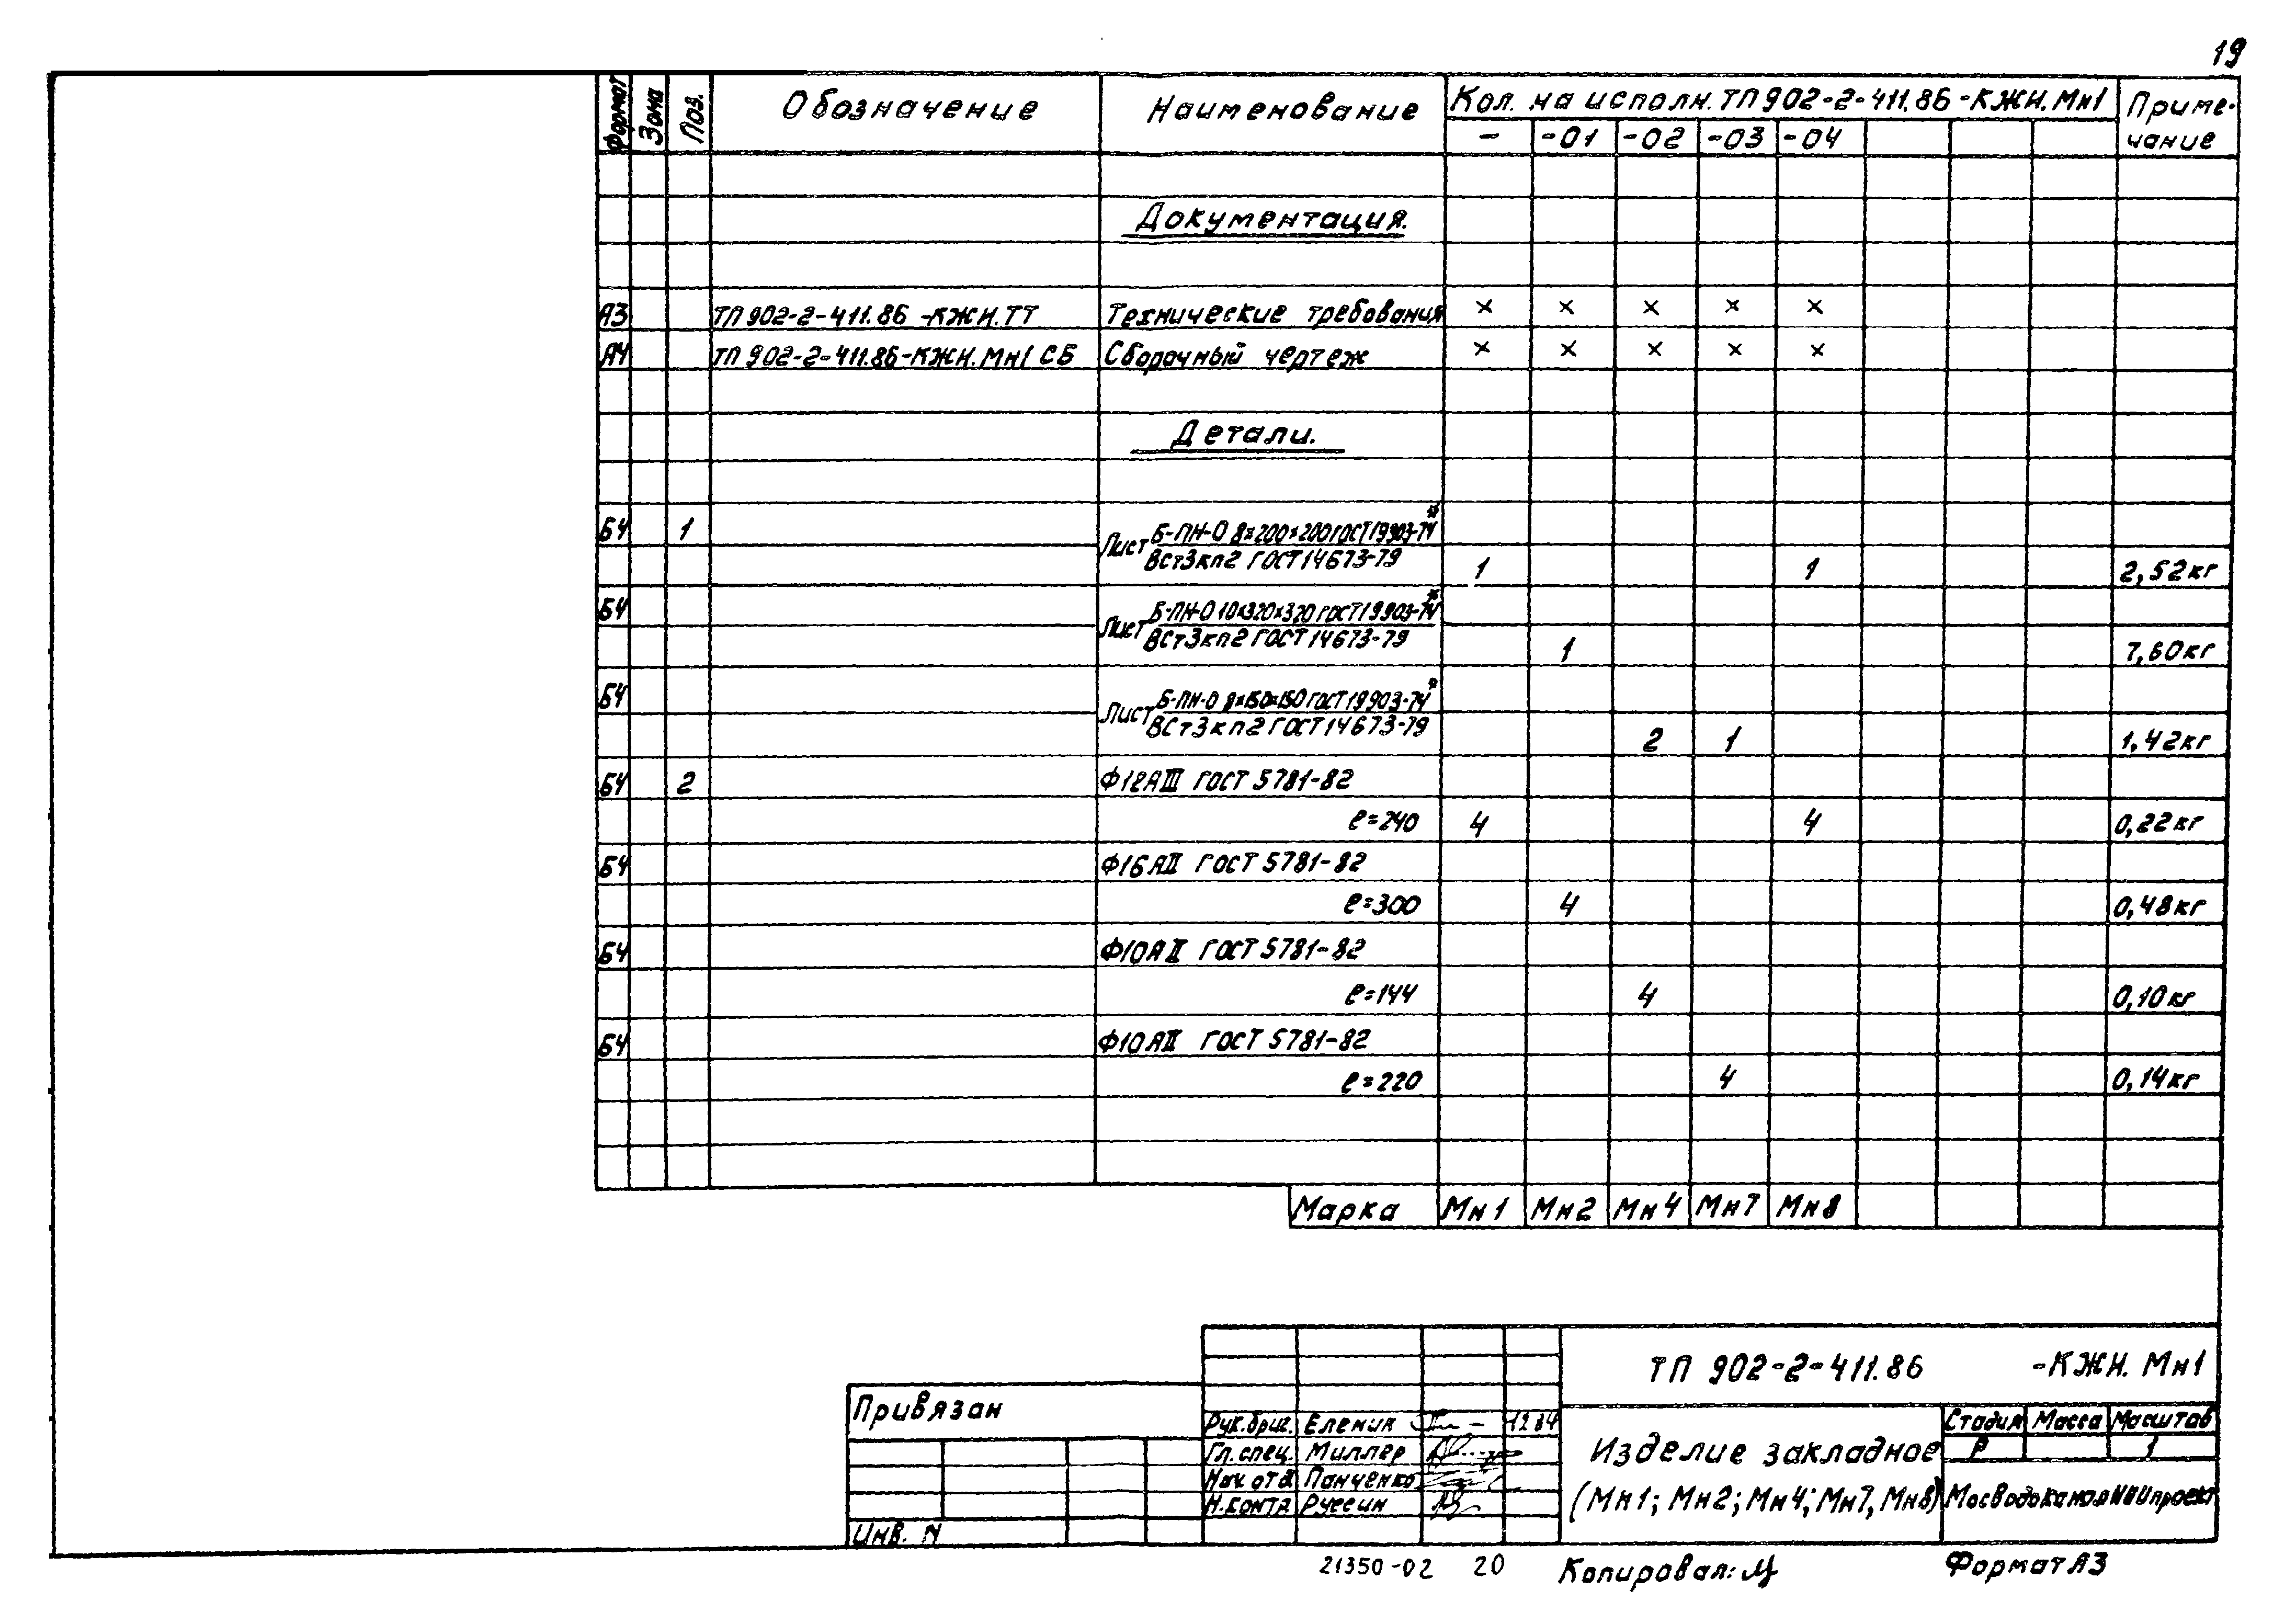 19
Формат Зона Поз. Обозначение Наименование Кол. на исполн. ТП 902-2-411.86 -КЖИ.Мн1 Приме-
- -01 -02 -03 -04 чание
Документация.
А3 ТП 902-2-411.86 -КЖИ.ТТ Технические требования × × × × ×
А4 ТП 902-2-411.86-КЖИ.Мн1 СБ Сборочный чертеж × × × × ×
Детали.
Б4 1 Лист Б-ПН-О 8×200×200 ГОСТ 19903-74*
ВСт3кп2 ГОСТ 14673-79 1 1 2,52кг
Б4 Лист Б-ПН-О 10×320×320 ГОСТ 19903-74*
ВСт3кп2 ГОСТ 14673-79 1 7,60кг
Б4 Лист Б-ПН-О 8×150×150 ГОСТ 19903-74*
ВСт3кп2 ГОСТ 14673-79 2 1 1,42кг
Б4 2 Ф12АIII ГОСТ 5781-82
ℓ=240 4 4 0,22кг
Б4 Ф16АII ГОСТ 5781-82
ℓ=300 4 0,48кг
Б4 Ф10АII ГОСТ 5781-82
ℓ=144 4 0,10кг
Б4 Ф10АII ГОСТ 5781-82
ℓ=220 4 0,14кг
Марка Мн1 Мн2 Мн4 Мн7 Мн8
ТП 902-2-411.86 -КЖИ. Мн1
Привязан
Рук.бриг. Еленик 12 84
Гл.спец. Миллер
Нач. отд. Панченко
Н.контр. Руссин
Инв. N
Изделие закладное
(Мн1; Мн2; Мн4; Мн7, Мн8)
Стадия Масса Масштаб
Р 1
МосводоканалНИИпроект
21350-02 20 Копировал: Формат А3